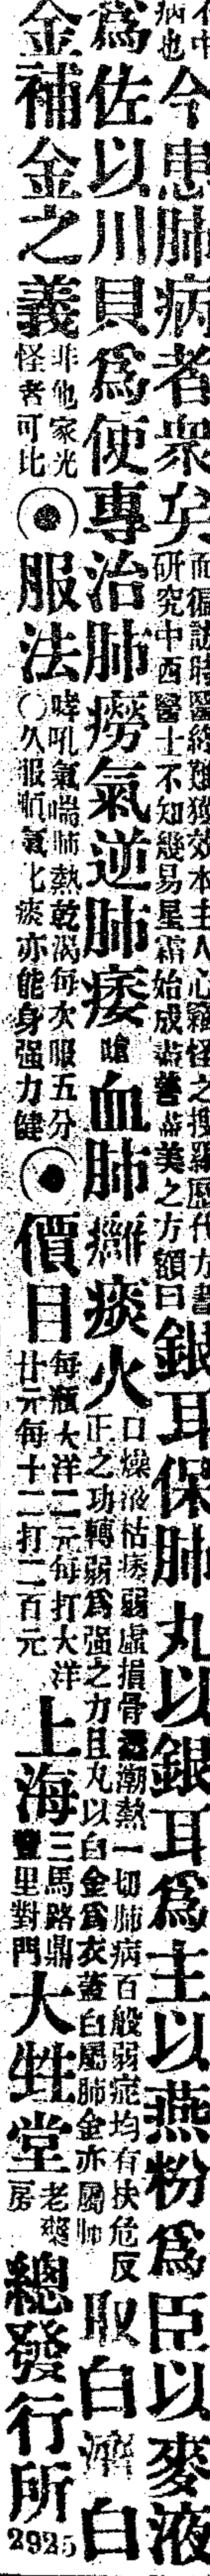 不中
病也
今患肺病者衆矣
而徧訪時醫終難獲效本主人心竊怪之搜羅歷代方書
研究中西醫士不知幾易星霜始成盡善盡美之方額曰
銀耳保肺丸以銀耳爲主以燕粉爲臣以麥液
爲佐以川貝爲使專治肺癆氣逆肺痿
嗆
血肺癰痰火
口燥液枯瘵弱虛損骨蒸潮熱一切肺病百般弱症均有扶危反
正之功轉弱爲强之力且丸以白金爲衣蓋白屬肺金亦屬肺
取白濟白
金補金之義
非他家光
怪者可比
服法
哮吼氣喘肺熱乾渴每次服五分
〇久服順氣化痰亦能身强力健
價目
每瓶大洋二元每打大洋
廿元每十二打二百元
上海
三馬路鼎
豐里對門
大生堂
老藥
房
總發行所
2925